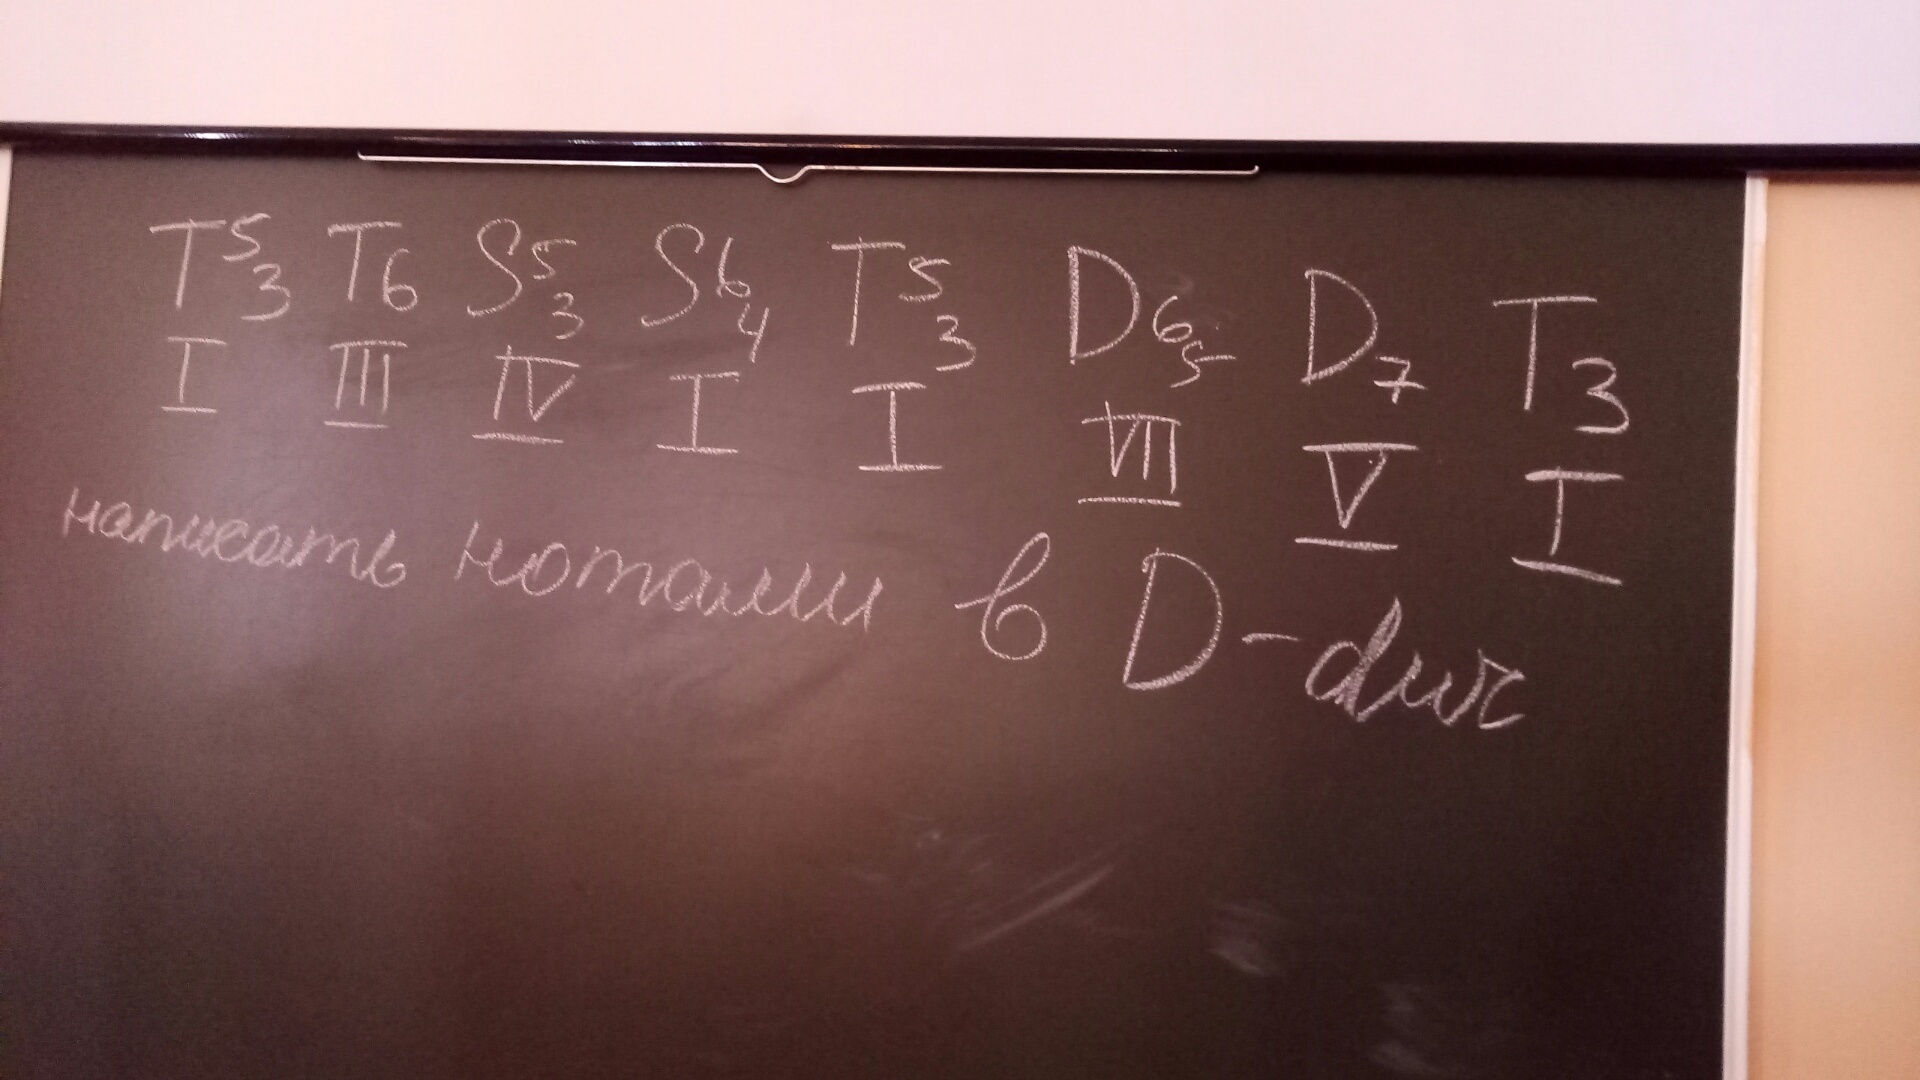 T53 T6 S53 S64 T53 D65 D7 T3
I III IV I I VII V I
написать нотами в D-dur